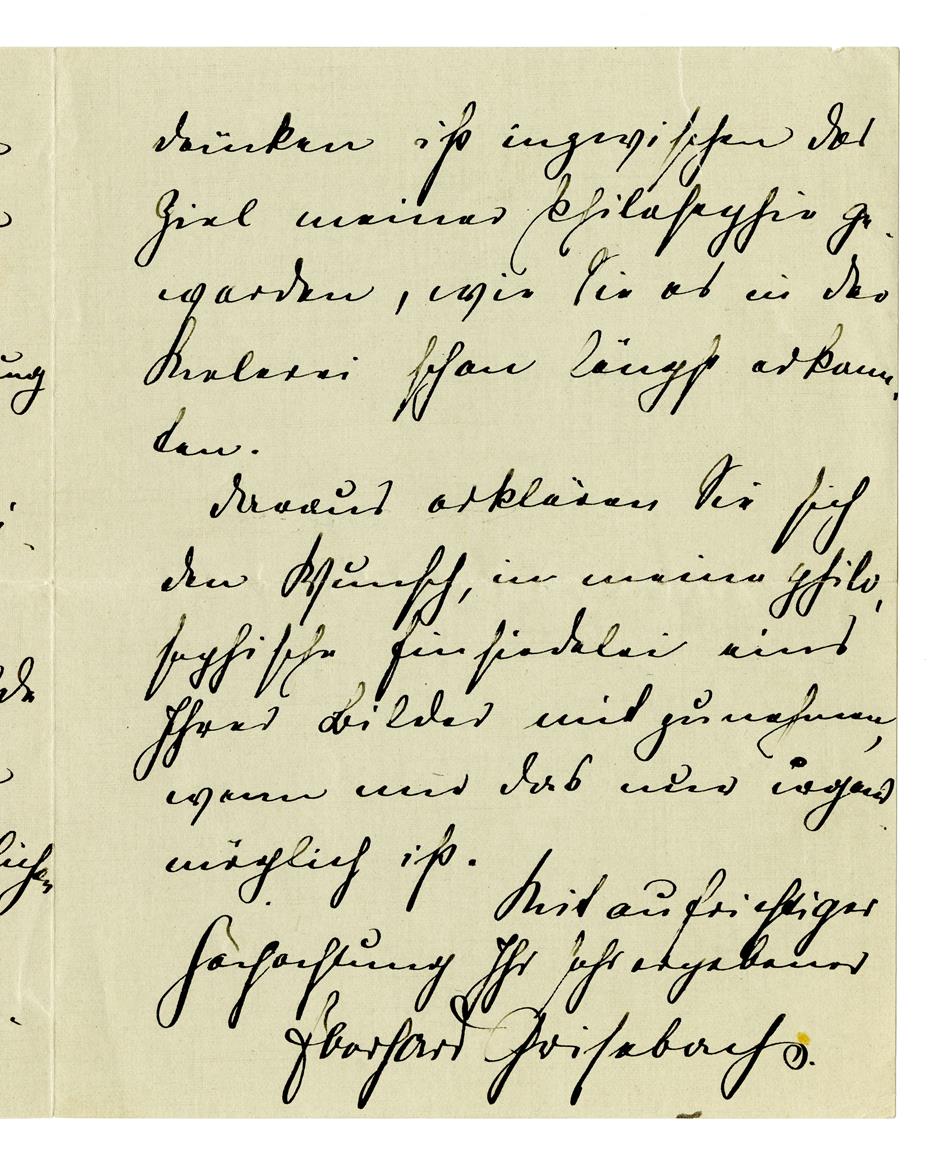 drücken ist inzwischen das
Ziel meiner Philosophie ge-
worden, wie Sie es in der
Malerei schon längst erkann-
ten.
Daraus erklären Sie sich
den Wunsch, in meine philo-
sophische Einsiedelei eins
Ihrer Bilder mitzunehmen,
wenn mir das nur irgend
möglich ist.
Mit aufrichtiger
Hochachtung Ihr sehr ergebener
Eberhard Grisebach.